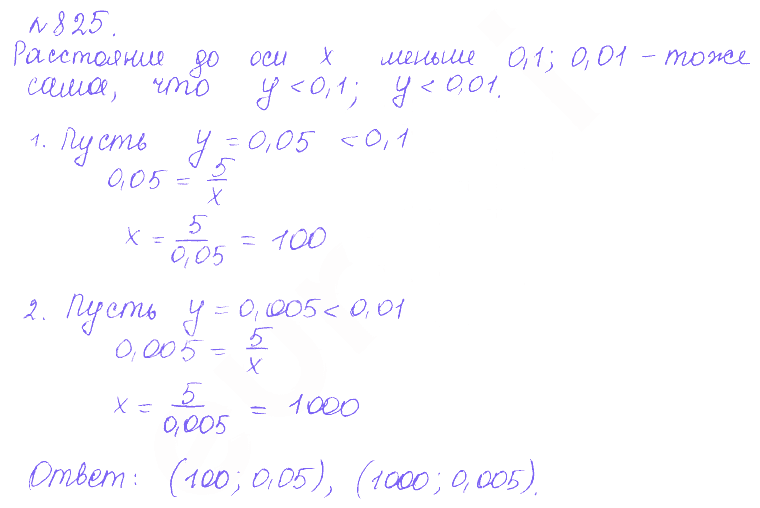 №825.
Расстояние до оси x меньше 0,1; 0,01 – тоже
само, что y < 0,1; y < 0.01.
1. Пусть y = 0,05 < 0,1
0,05 = 5/x
x = 5/0,05 = 100
2. Пусть y = 0,005 < 0,01
0,005 = 5/x
x = 5/0,005 = 1000
Ответ: (100; 0,05), (1000; 0,005).